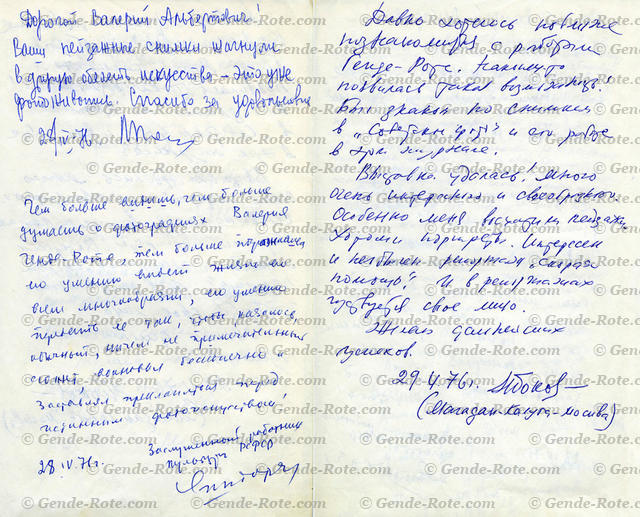 Дорогой Валерий Амбертович!
Ваши пейзажные снимки шагнули
в другую область искусства – это уже
фотоживопись. Спасибо за удовольствие
28/IV-76
Чем больше видишь, чем больше
думаешь о фотографиях Валерия
Генде-Роте, тем больше поражаешься
его умению видеть жизнь во
всем многообразии, его умению
передать ее так, чтобы, казалось,
обычный, ничем не примечательный
сюжет, взволновал бесконечно и
заставил преклоняться перед
истинным фотоискусством!
28 IV 76г.
Заслуженный работник
культуры РСФСР
Давно хотелось поближе
познакомиться с работами
Генде-Роте. Наконец-то
появилась такая возможность!
Был знаком по снимкам
в „Советском фото" и его работе
в журнале.
Выставка удалась! Много
очень интересного и своеобразного.
Особенно меня восхитили пейзажи.
Хороши портреты. Интересен
и необычен репортаж „Скорая
помощь". И в репортажах
чувствуется свое лицо.
Желаю дальнейших
успехов.
29.IV.76г.
(Магадан-Калуга-Москва)
© Gende-Rote.com